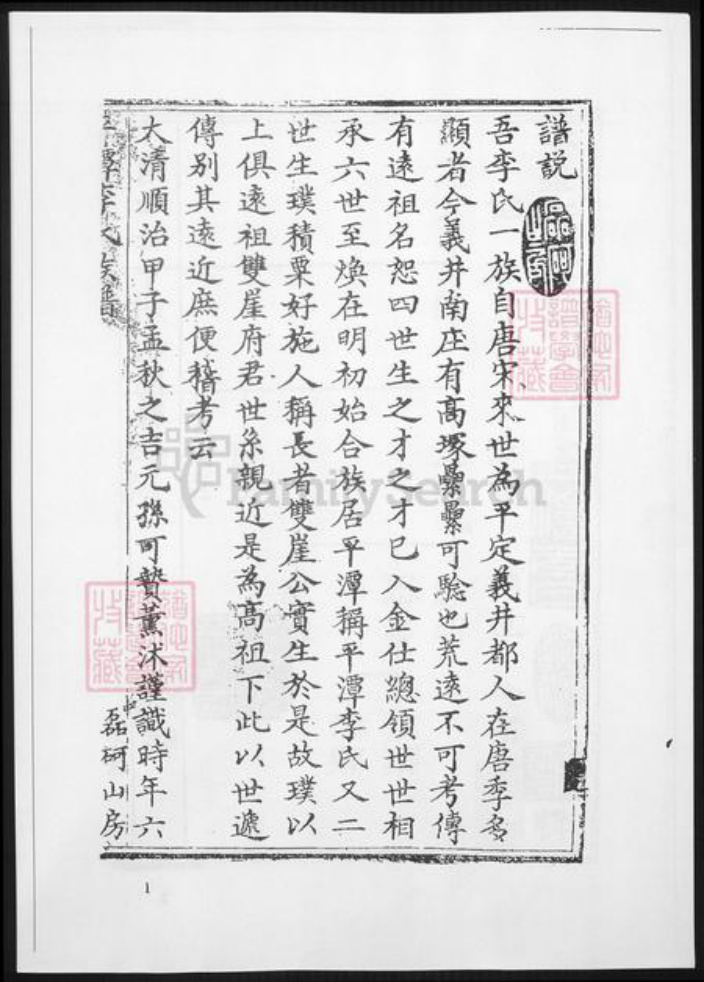 譜説
吾李氏一族自唐宋來世為平定義井都人在唐季多
顯者今義井南庄有高塚纍纍可驗也荒遠不可考傳
有遠祖名恕四世生之才之才已入金仕總領世世相
承六世至煥在明初始合族居平潭稱平潭李氏又二
世生璞積粟好施人稱長者雙崖公實生於是故璞以
上俱遠祖雙崖府君世系親近是為高祖下此以世遞
傳別其遠近庶便稽考云
大清順治甲子孟秋之吉元孫可贄薰沐謹識時年六
平潭李氏族譜
磊砢山房
FamilySearch
譜學會
收藏
收藏
1